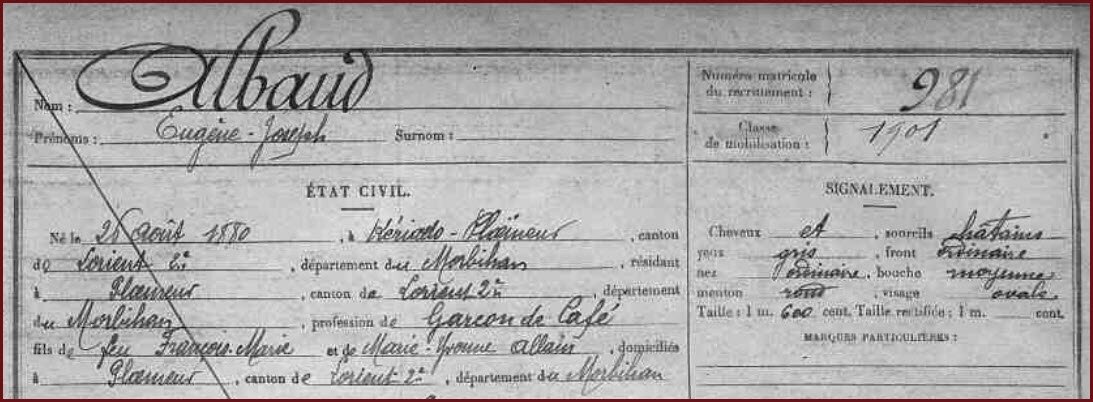 Nom : Albaud
Prénoms : Eugène-Joseph Surnom :
Numéro matricule du recrutement : 981
Classe de mobilisation : 1901
ÉTAT CIVIL.
Né le 26 août 1880, à Kériado-Ploëmeur, canton
de Lorient 2e, département du Morbihan, résidant
à Ploemeur, canton de Lorient 2e, département
du Morbihan, profession de Garçon de Café
fils de feu François-Marie et de Marie-Yvonne Allain, domiciliés
à Ploemeur, canton de Lorient 2e, département du Morbihan
SIGNALEMENT.
Cheveux et sourcils chatains
yeux gris, front ordinaire
nez ordinaire, bouche moyenne
menton rond, visage ovale
Taille : 1 m. 600 cent. Taille rectifiée : 1 m. cent.
MARQUES PARTICULIÈRES :